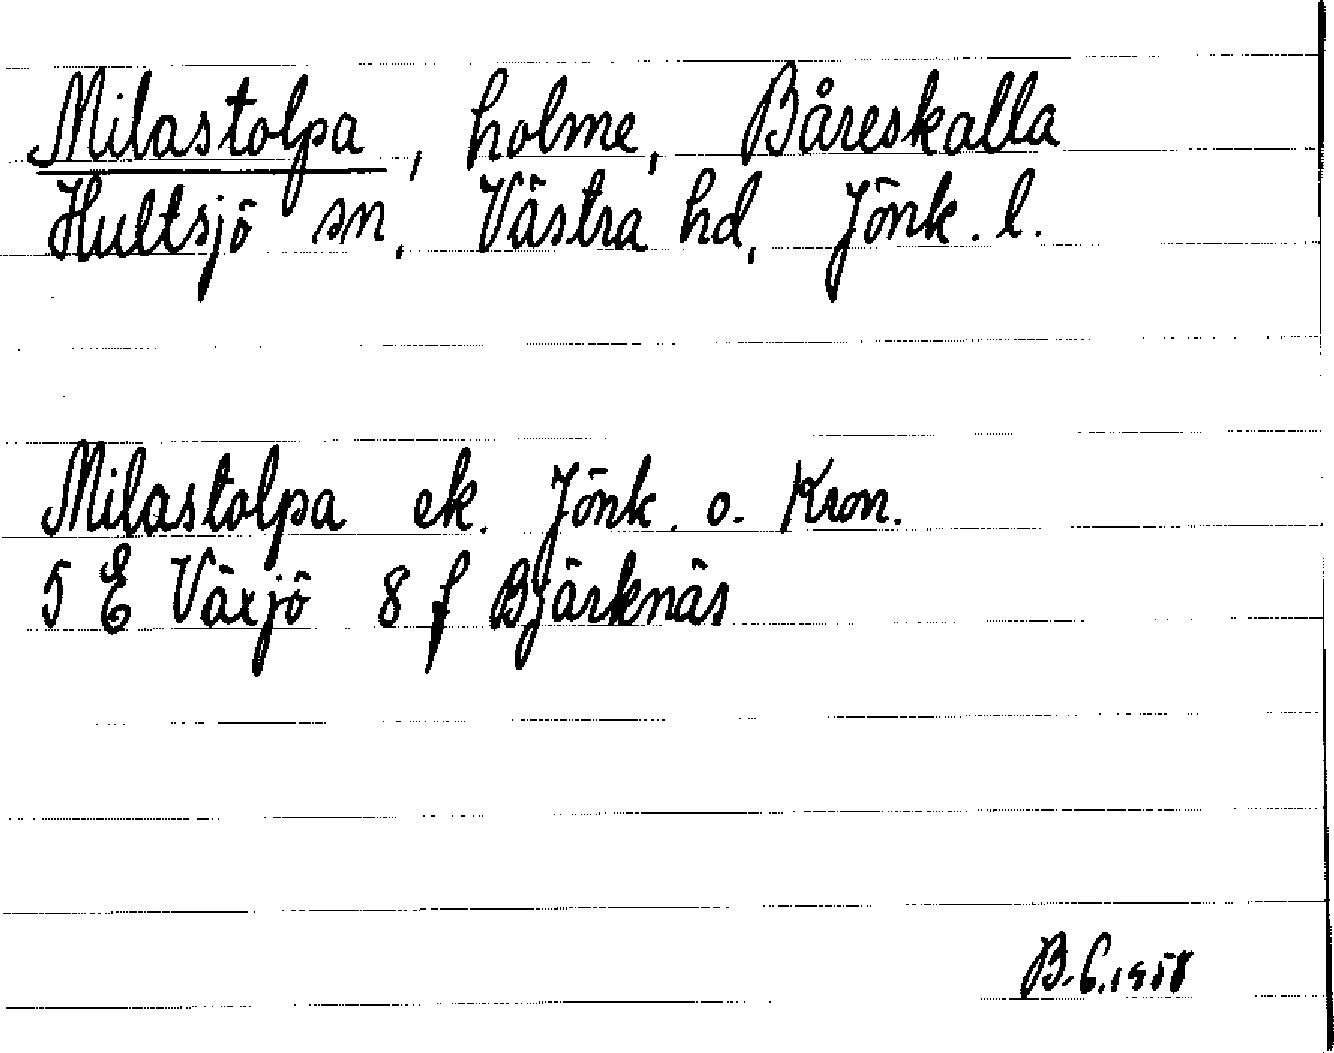 Milastolpa, holme, Båreskalla
Hultsjö sn, Västra hd, Jönk. l.
Milastolpa ek. Jönk. o. Kron.
5 E Växjö 8 f Bjärknäs
B.C. 1958